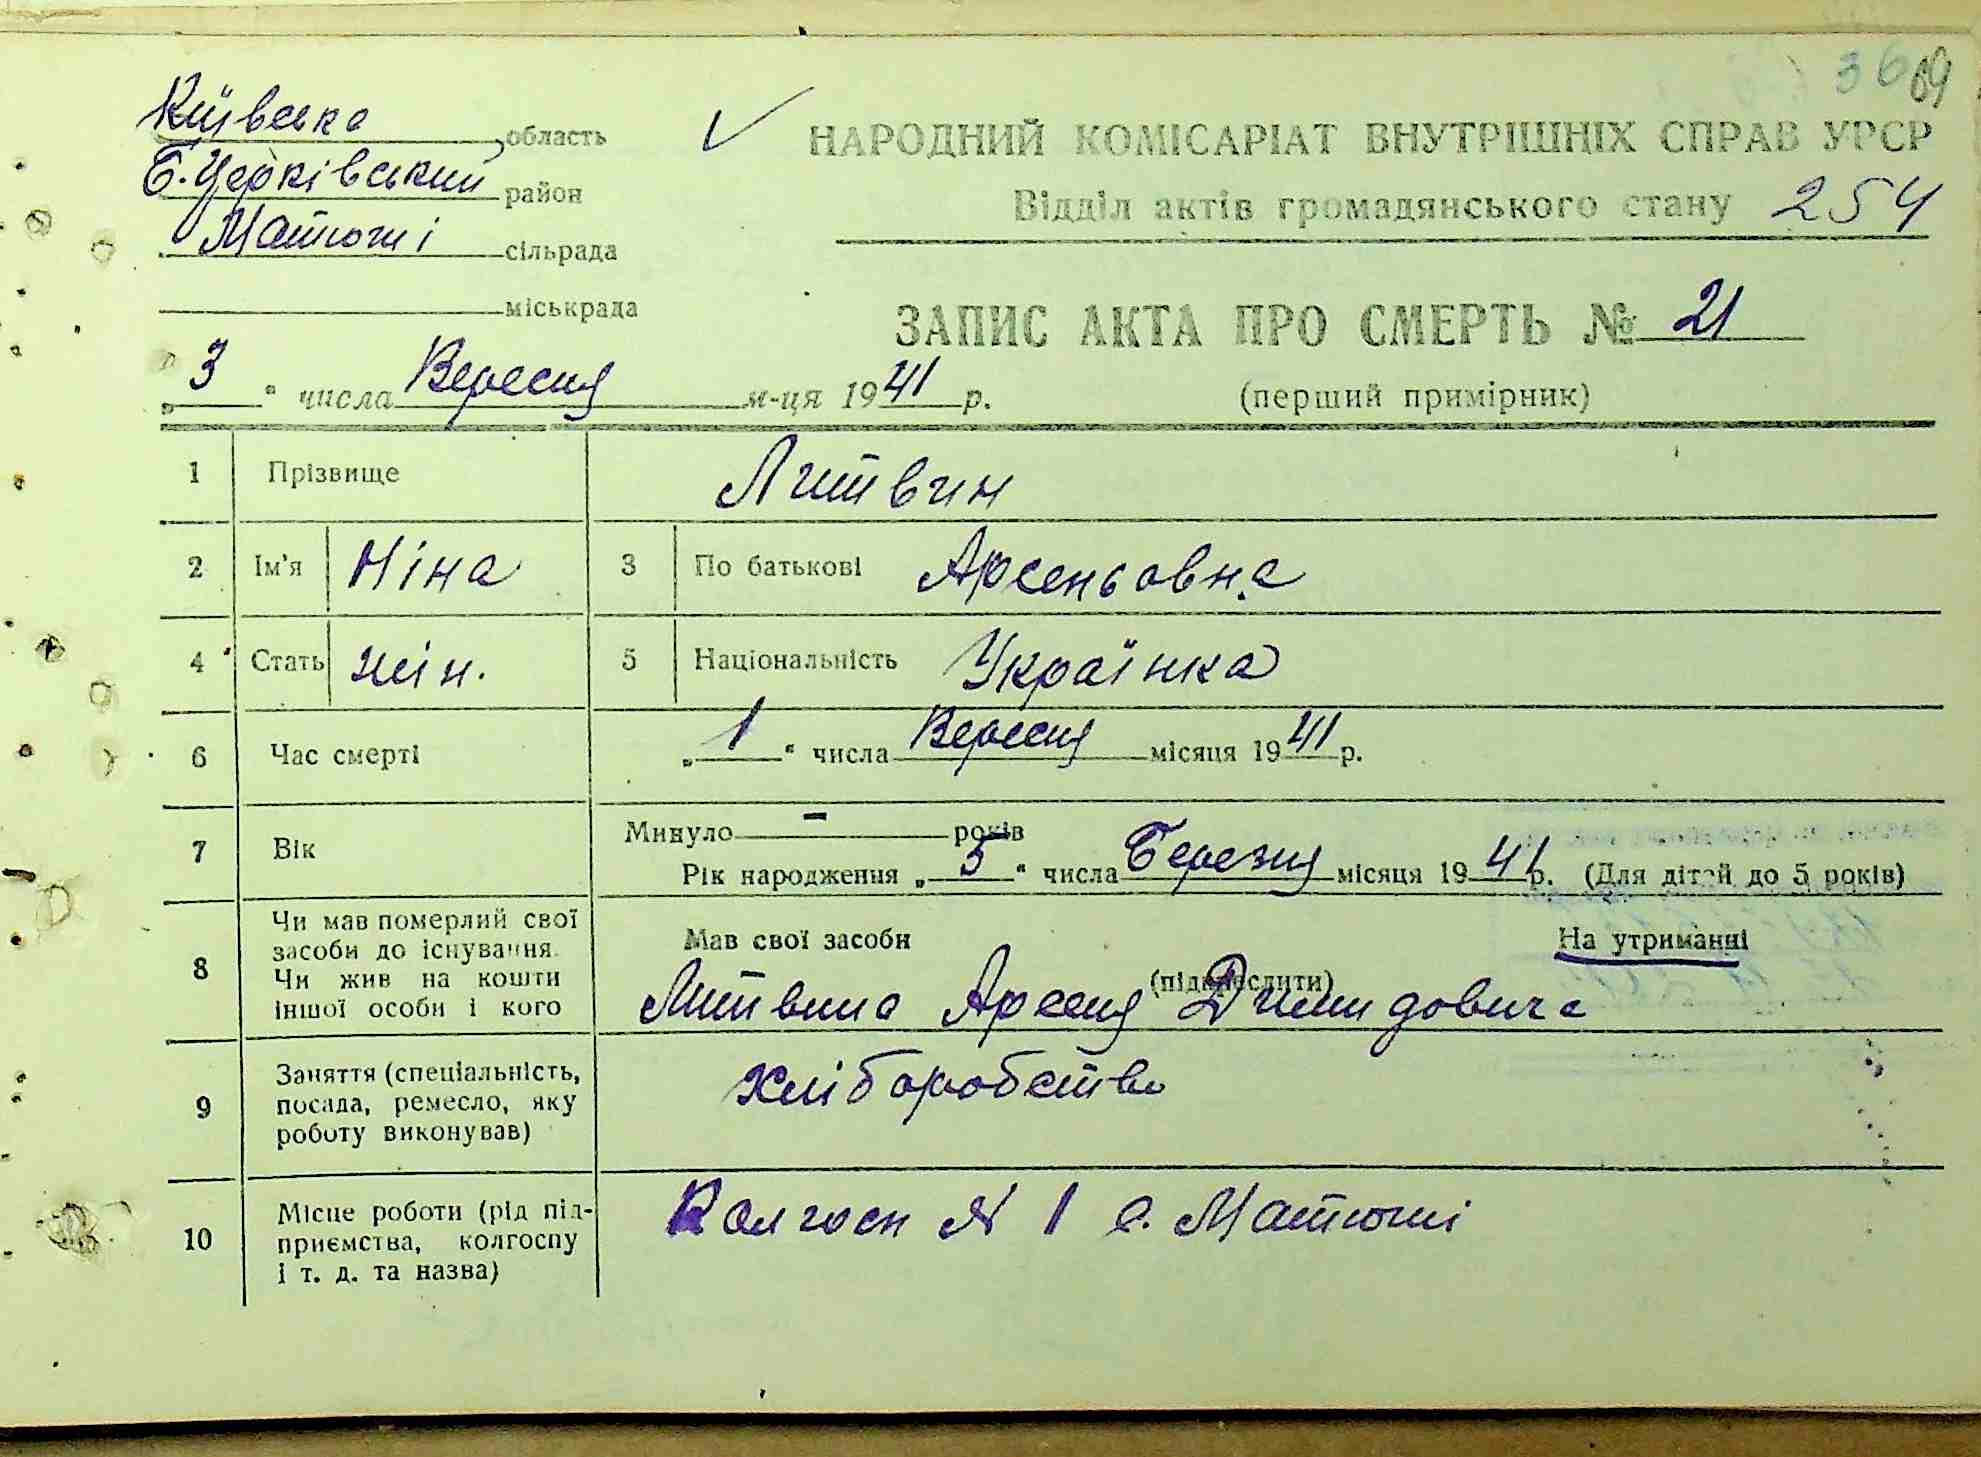 36 69
Київська область
Б. Церківський район
Матюші сільрада
міськрада
НАРОДНИЙ КОМІСАРІАТ ВНУТРІШНІХ СПРАВ УРСР
Відділ актів громадянського стану 254
ЗАПИС АКТА ПРО СМЕРТЬ № 21
(перший примірник)
„3“ числа Вересня м-ця 1941 р.
1 Прізвище Литвин
2 Ім'я Ніна 3 По батькові Арсеньовна
4 Стать жін. 5 Національність Українка
6 Час смерті „1“ числа Вересня місяця 1941 р.
7 Вік Минуло - років
Рік народження „5“ числа Березня місяця 1941 р. (Для дітей до 5 років)
8 Чи мав померлий свої засоби до існування. Чи жив на кошти іншої особи і кого
Мав свої засоби На утриманні
(підкреслити)
Литвина Арсеня Димидовича
9 Заняття (спеціальність, посада, ремесло, яку роботу виконував) хліборобство
10 Місце роботи (рід підприємства, колгоспу і т. д. та назва) Колгосп № 1 с. Матюші